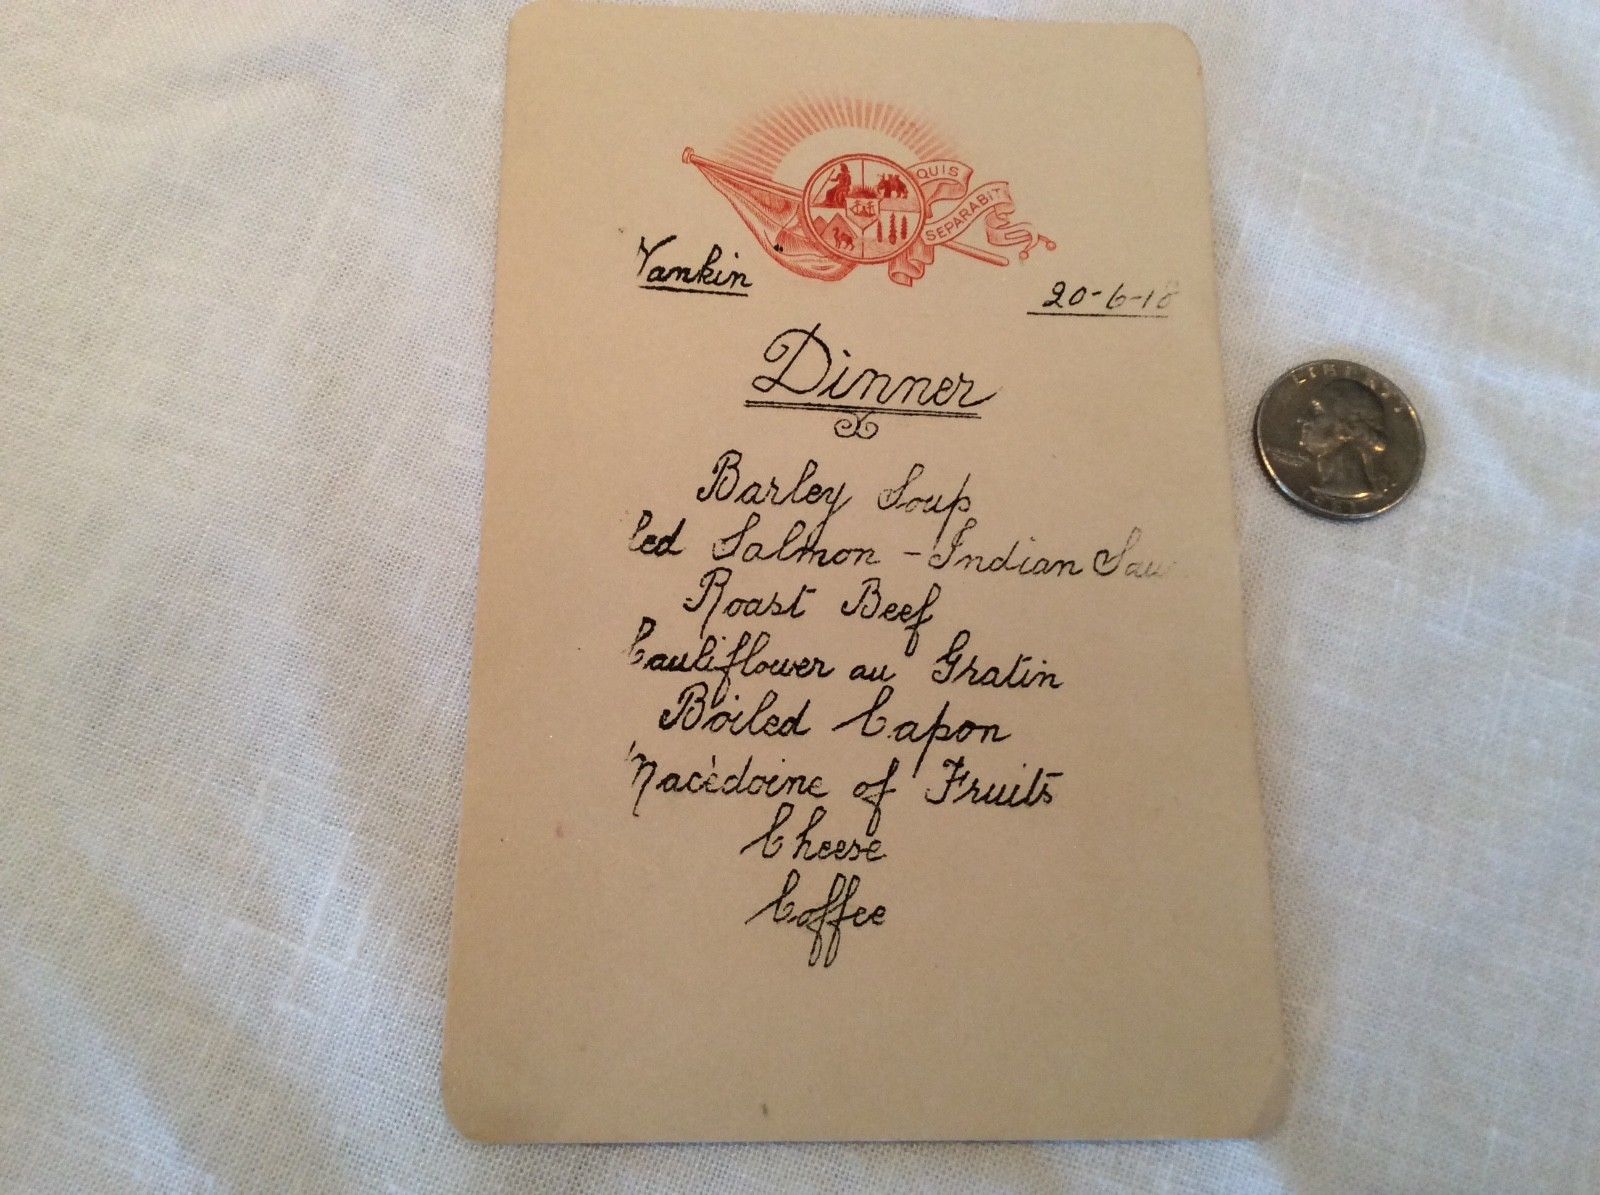 QUIS
SEPARABIT
Yankin"
20-6-18
Dinner
Barley Soup
led Salmon - Indian Sau
Roast Beef
Cauliflower au Gratin
Boiled Capon
Macèdoine of Fruits
Cheese
Coffee
LIBERTY